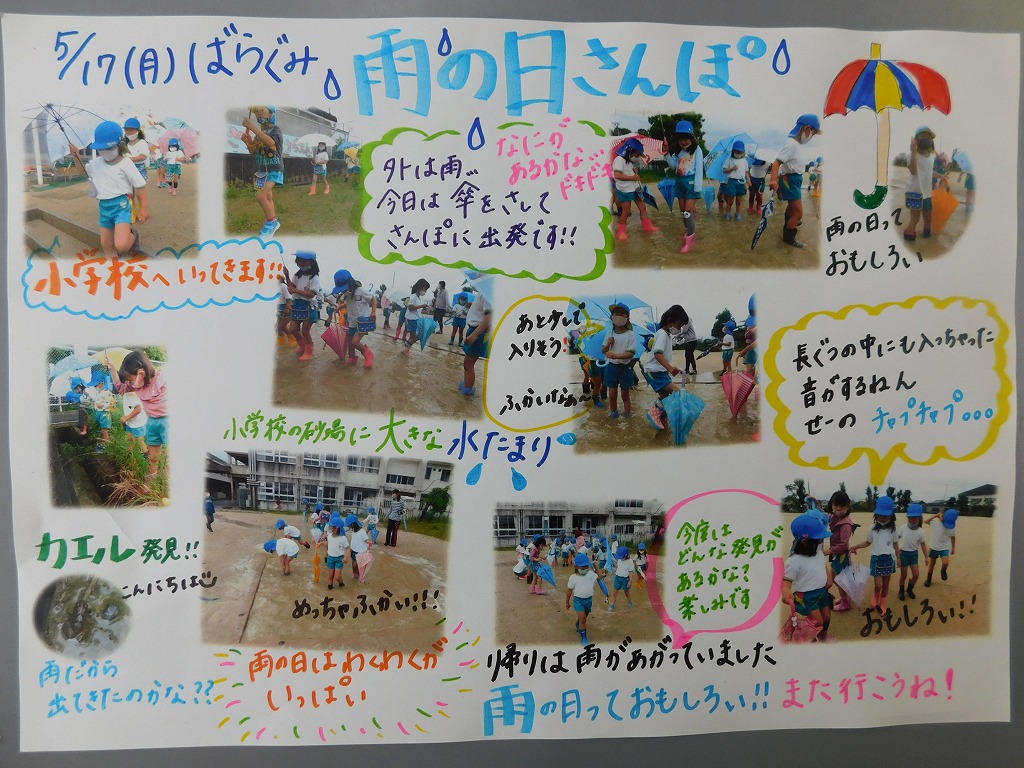 5/17(月)ばらぐみ
雨の日さんぽ
外は雨…
今日は傘をさして
さんぽに出発です!!
なにが
あるかな…
ドキドキ
雨の日って
おもしろい
小学校へいってきます!!
あと少しで
入りそう!
ふかいなぁ〜
長ぐつの中にも入っちゃった
音がするねん
せーの チャプチャプ。。。
小学校の砂場に大きな水たまり
カエル発見!!
こんにちは
雨だから
出てきたのかな??
めっちゃふかい!!!
雨の日はわくわくが
いっぱい
今度は
どんな発見が
あるかな?
楽しみです
おもしろい!!
帰りは雨があがっていました
雨の日っておもしろい!! また行こうね!